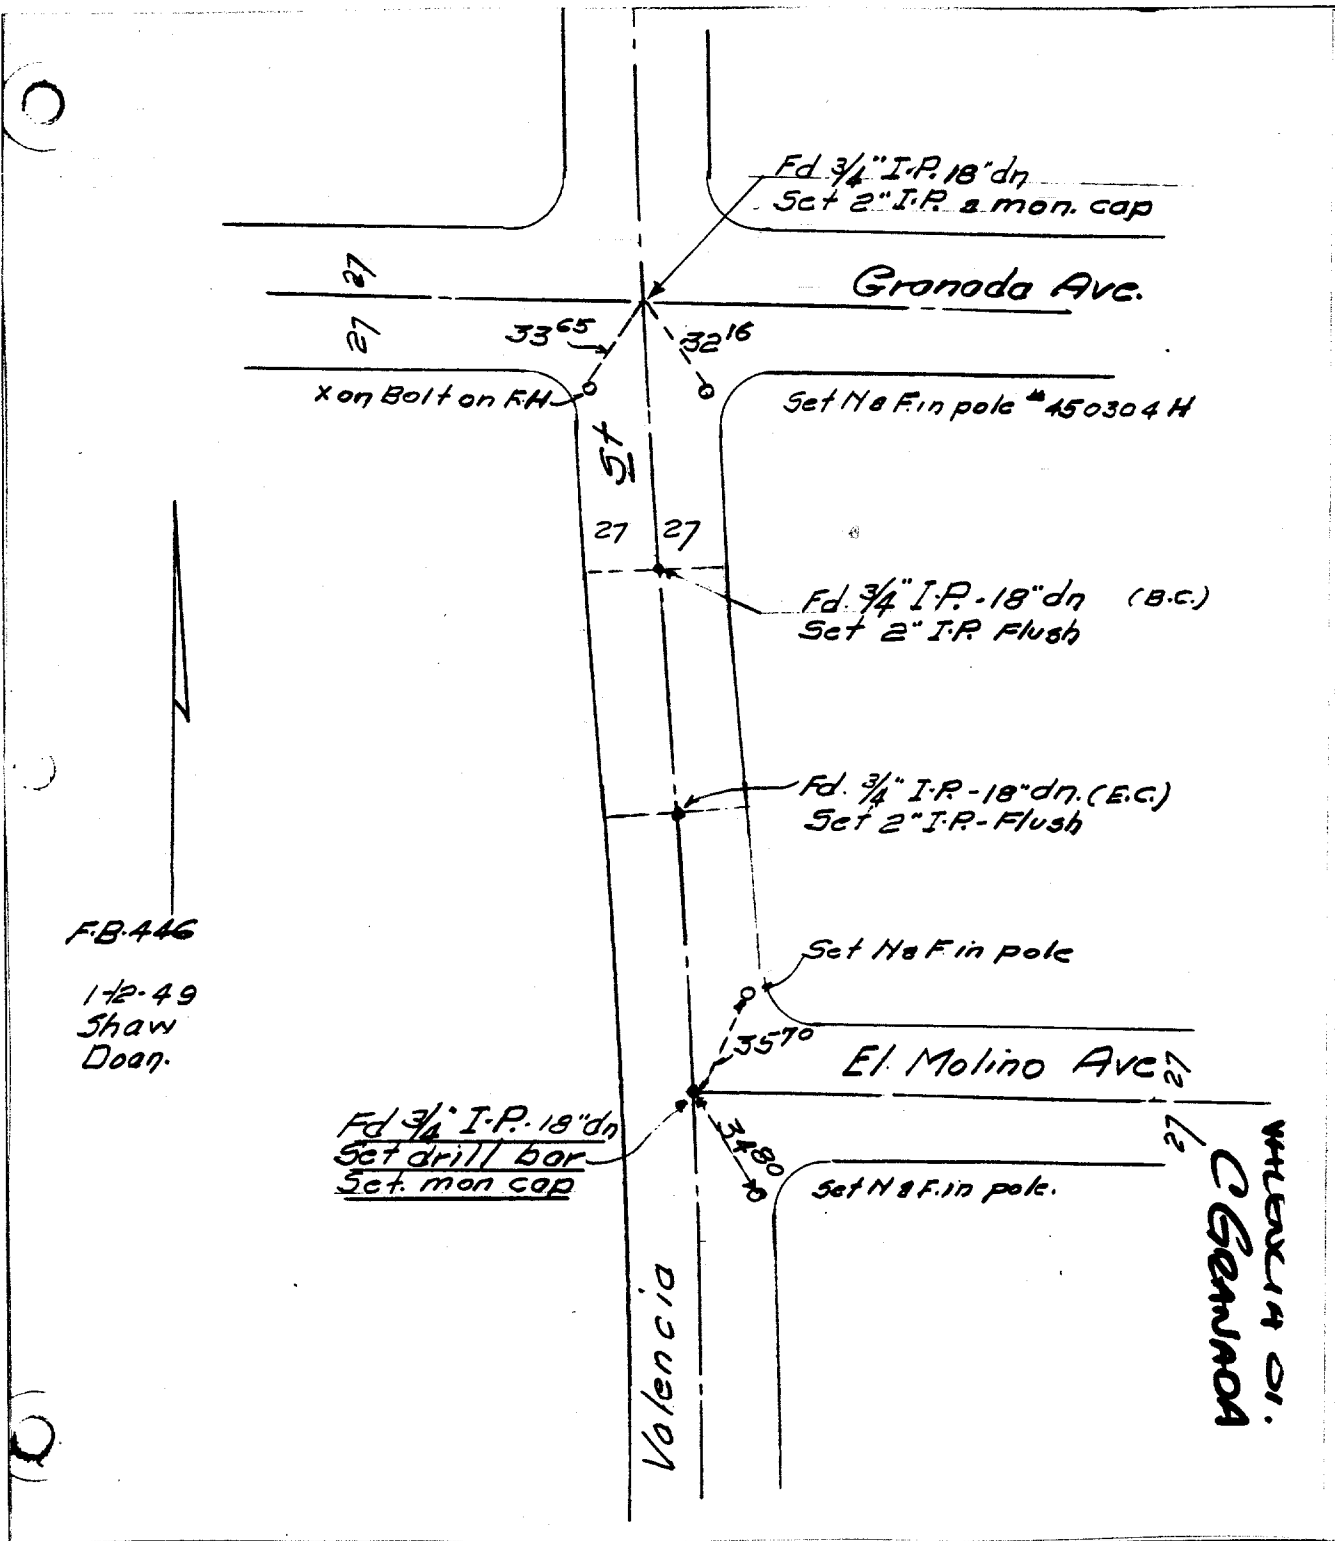 Fd 3/4" I.P. 18" dn
Set 2" I.P. & mon. cap
Granada Ave.
27
27
33 65
32 16
x on Bolt on F.H.
Set N & F. in pole #450304 H
St
27 27
Fd. 3/4" I.P. - 18" dn (B.C.)
Set 2" I.P. Flush
Fd. 3/4" I.P. - 18" dn. (E.C.)
Set 2" I.P. - Flush
F.B. 446
1-12-49
Shaw
Doan.
Set N & F in pole
35 70
El Molino Ave
27
27
Fd 3/4" I.P. 18" dn
Set drill bar
Set. mon cap
34 80
Set N & F. in pole.
Valencia
VALENCIA
C GRANADA